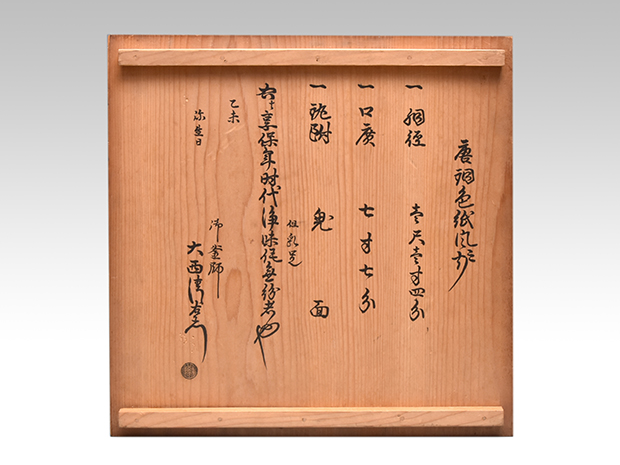 唐銅色紙風炉
一 胴径 壱尺壱寸四分
一 口広 七寸七分
一 鐶附 鬼面
但乳足
右ハ享保年時代浄味作無紛者也
乙未
弥生日
御釜師
大西清右衛門